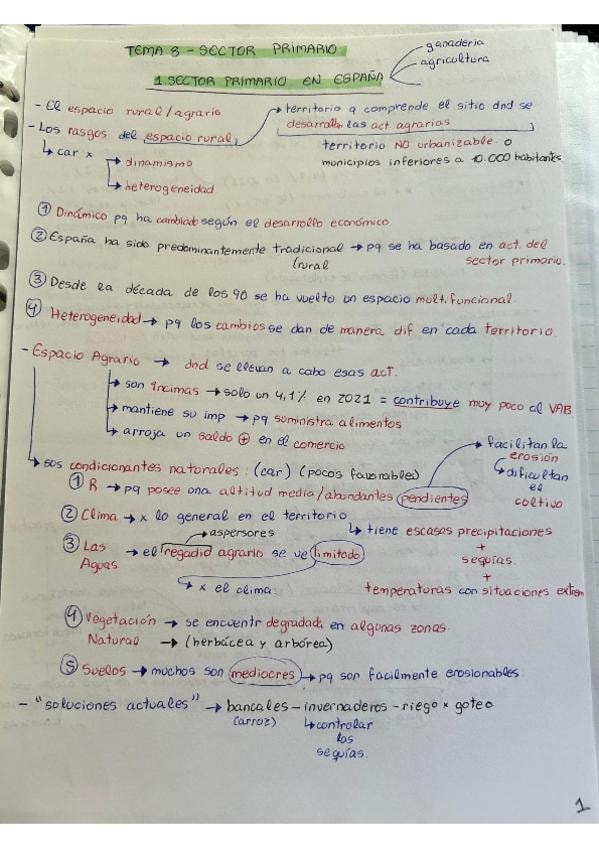 TEMA 8 - SECTOR PRIMARIO
1. SECTOR PRIMARIO EN ESPAÑA
ganadería
agricultura
- El espacio rural/agrario
- Los rasgos del espacio rural,
→ territorio q comprende el sitio dnd se
desarrollan las act. agrarias
territorio NO urbanizable o
municipios inferiores a 10.000 habitantes
↳ car x → dinamismo
↳ heterogeneidad
① Dinámico pq ha cambiado según el desarrollo económico.
② España ha sido predominantemente tradicional → pq se ha basado en act. del
/rural
sector primario.
③ Desde la década de los 90 se ha vuelto un espacio multifuncional.
④ Heterogeneidad → pq los cambios se dan de manera dif en cada territorio.
- Espacio Agrario → dnd se llevan a cabo esas act.
→ son íncimas → solo un 4,1% en 2021 = contribuye muy poco al VAB
→ mantiene su imp → pq suministra alimentos
→ arroja un saldo ⊕ en el comercio
↳ sus condicionantes naturales: (car) (pocos favorables)
→ facilitan la
erosión
↳ dificultan
el
cultivo
① R → pq posee una altitud media/abundantes pendientes
② Clima → x lo general en el territorio
↳ tiene escasas precipitaciones
+
sequías.
+
temperaturas con situaciones extrem
③ Las
Aguas
→ el regadío agrario se ve limitado
→ aspersores
→ x el clima
④ Vegetación → se encuentr degradada, en algunas zonas.
Natural → (herbácea y arbórea)
⑤ Suelos → muchos son mediocres → pq son facilmente erosionables.
- "soluciones actuales" → bancales - invernaderos - riego x goteo
(arroz)
↳ controlar
las
sequías.
1